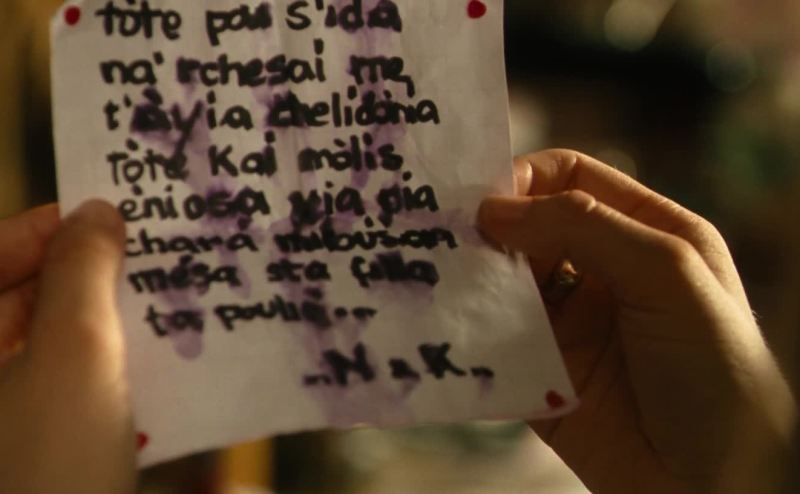 tòte pou s'ida
na' rchesai me
t'àyia chelidònia
Tòte Kai mòlis
èniosa yia pia
chará milousan
mésa sta fílla
ta pouliá...
..N.K..